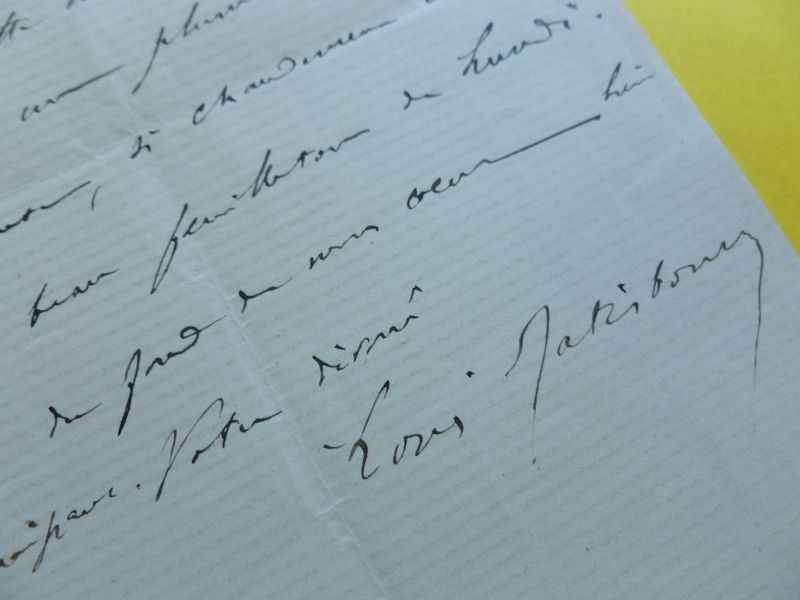 au
si chaudement
beau feuilleton de Lundi.
du fond de mon coeur — bien
Votre dévoué
Louis Ratisbonne